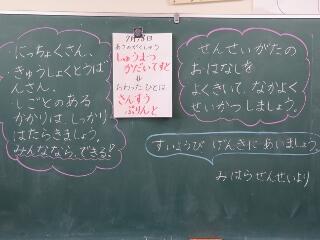 にっちょくさん、
きゅうしょくとうば
んさん、
しごとのある
かかりは、しっかり
はたらきましょう。
みんななら、できる!
7月18日
あさのがくしゅう
しゅうまつ
かだいてすと
↓
おわったひとは
さんすう
ぷりんと
せんせいがたの
おはなしを
よくきいて、なかよく
せいかつしましょう。
すいようび げんきに あいましょう。
みはらせんせいより